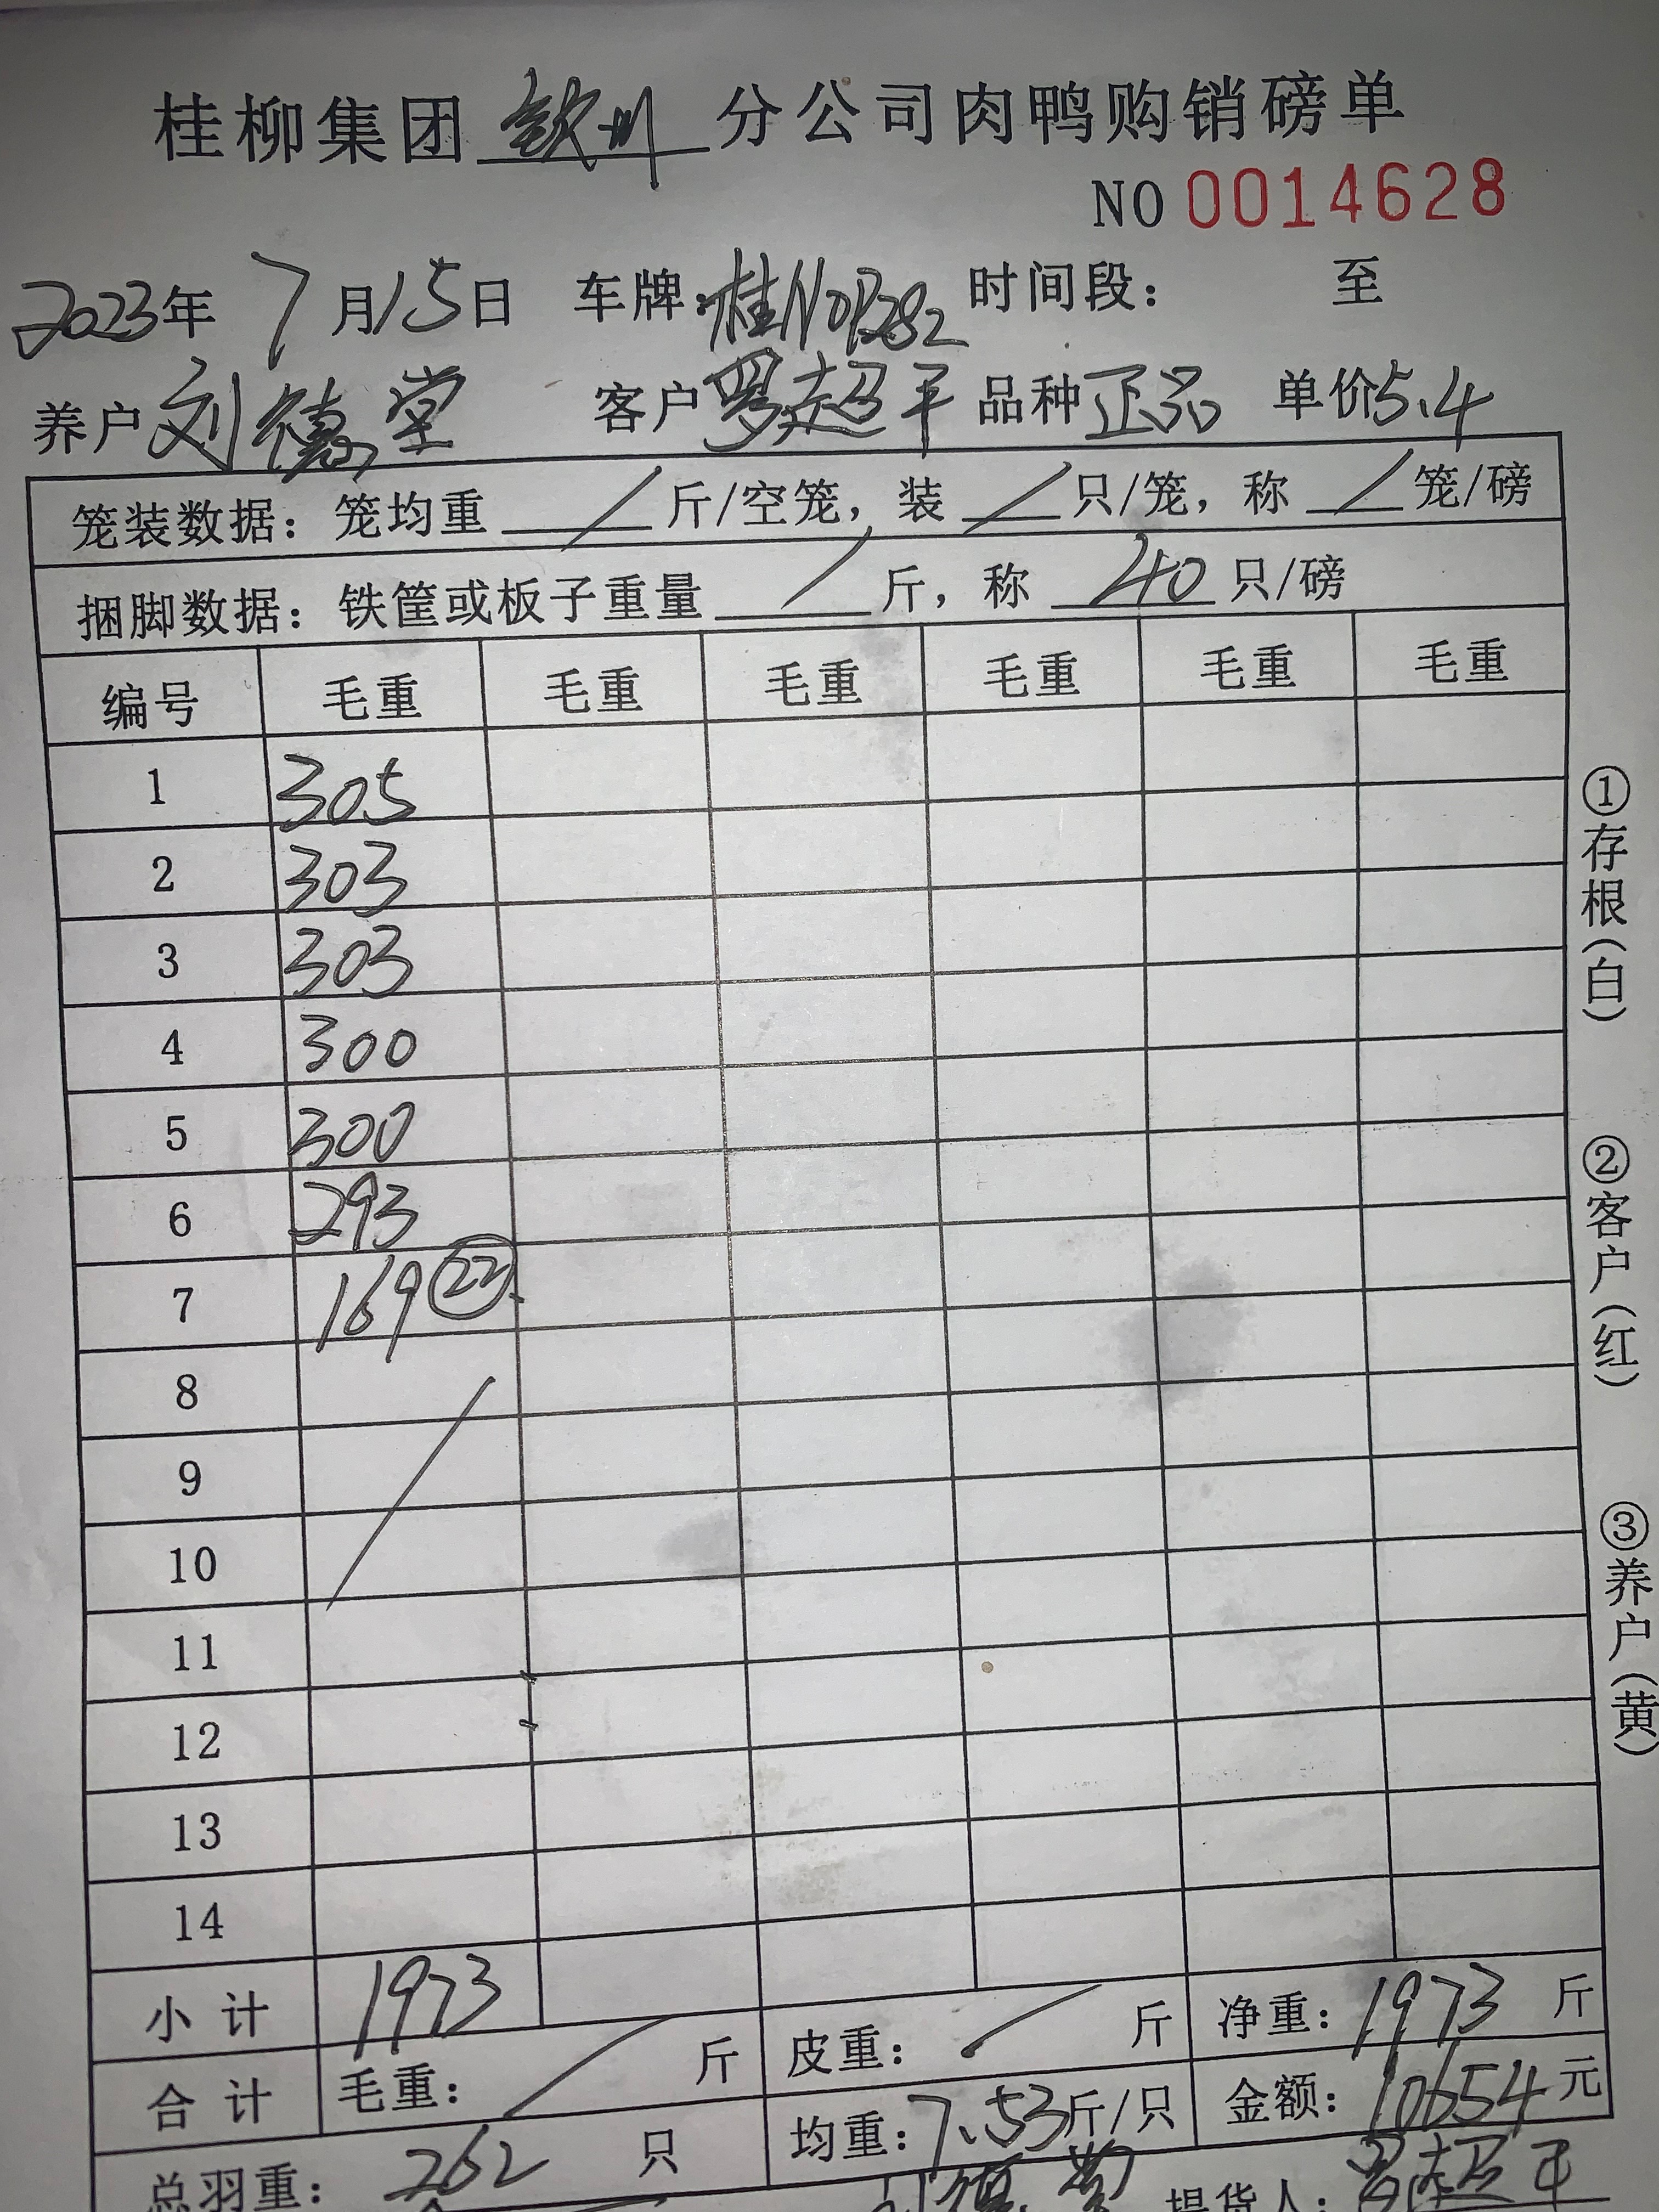 桂柳集团 钦州 分公司肉鸭购销磅单
NO 0014628
2023年 7月15日 车牌:桂N0P282 时间段: 至
养户 刘德堂 客户 罗超平 品种 正品 单价5.4
笼装数据: 笼均重 / 斤/空笼, 装 / 只/笼, 称 / 笼/磅
捆脚数据: 铁筐或板子重量 / 斤, 称 40 只/磅
编号 毛重 毛重 毛重 毛重 毛重 毛重
1 305
2 303
3 303
4 300
5 300
6 293
7 169 ㉒
8
9
10
11
12
13
14
小计 1973
合计 毛重: / 斤 皮重: / 斤 净重: 1973 斤
总羽重: 262 只 均重: 7.53斤/只 金额: 10654元
提货人: 罗超平
①存根(白)
②客户(红)
③养户(黄)